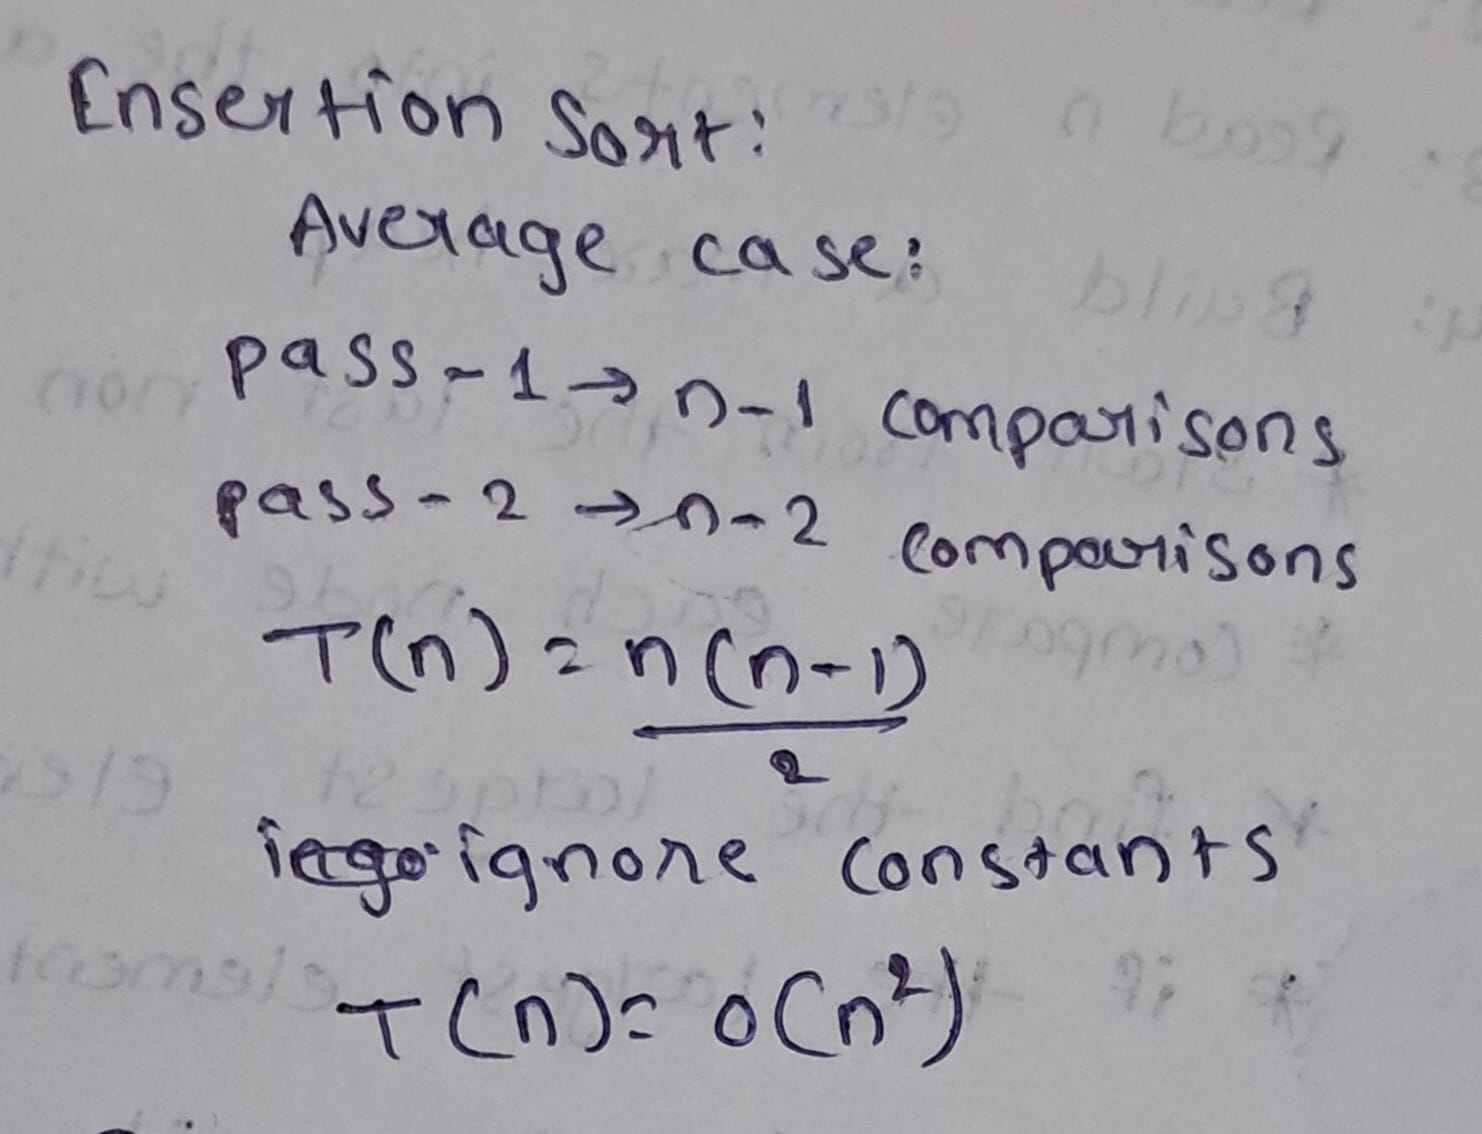 Insertion Sort:
Average case:
pass-1 → n-1 comparisons
pass-2 → n-2 comparisons
T(n) = n(n-1)
2
ignore constants
T(n) = O(n²)